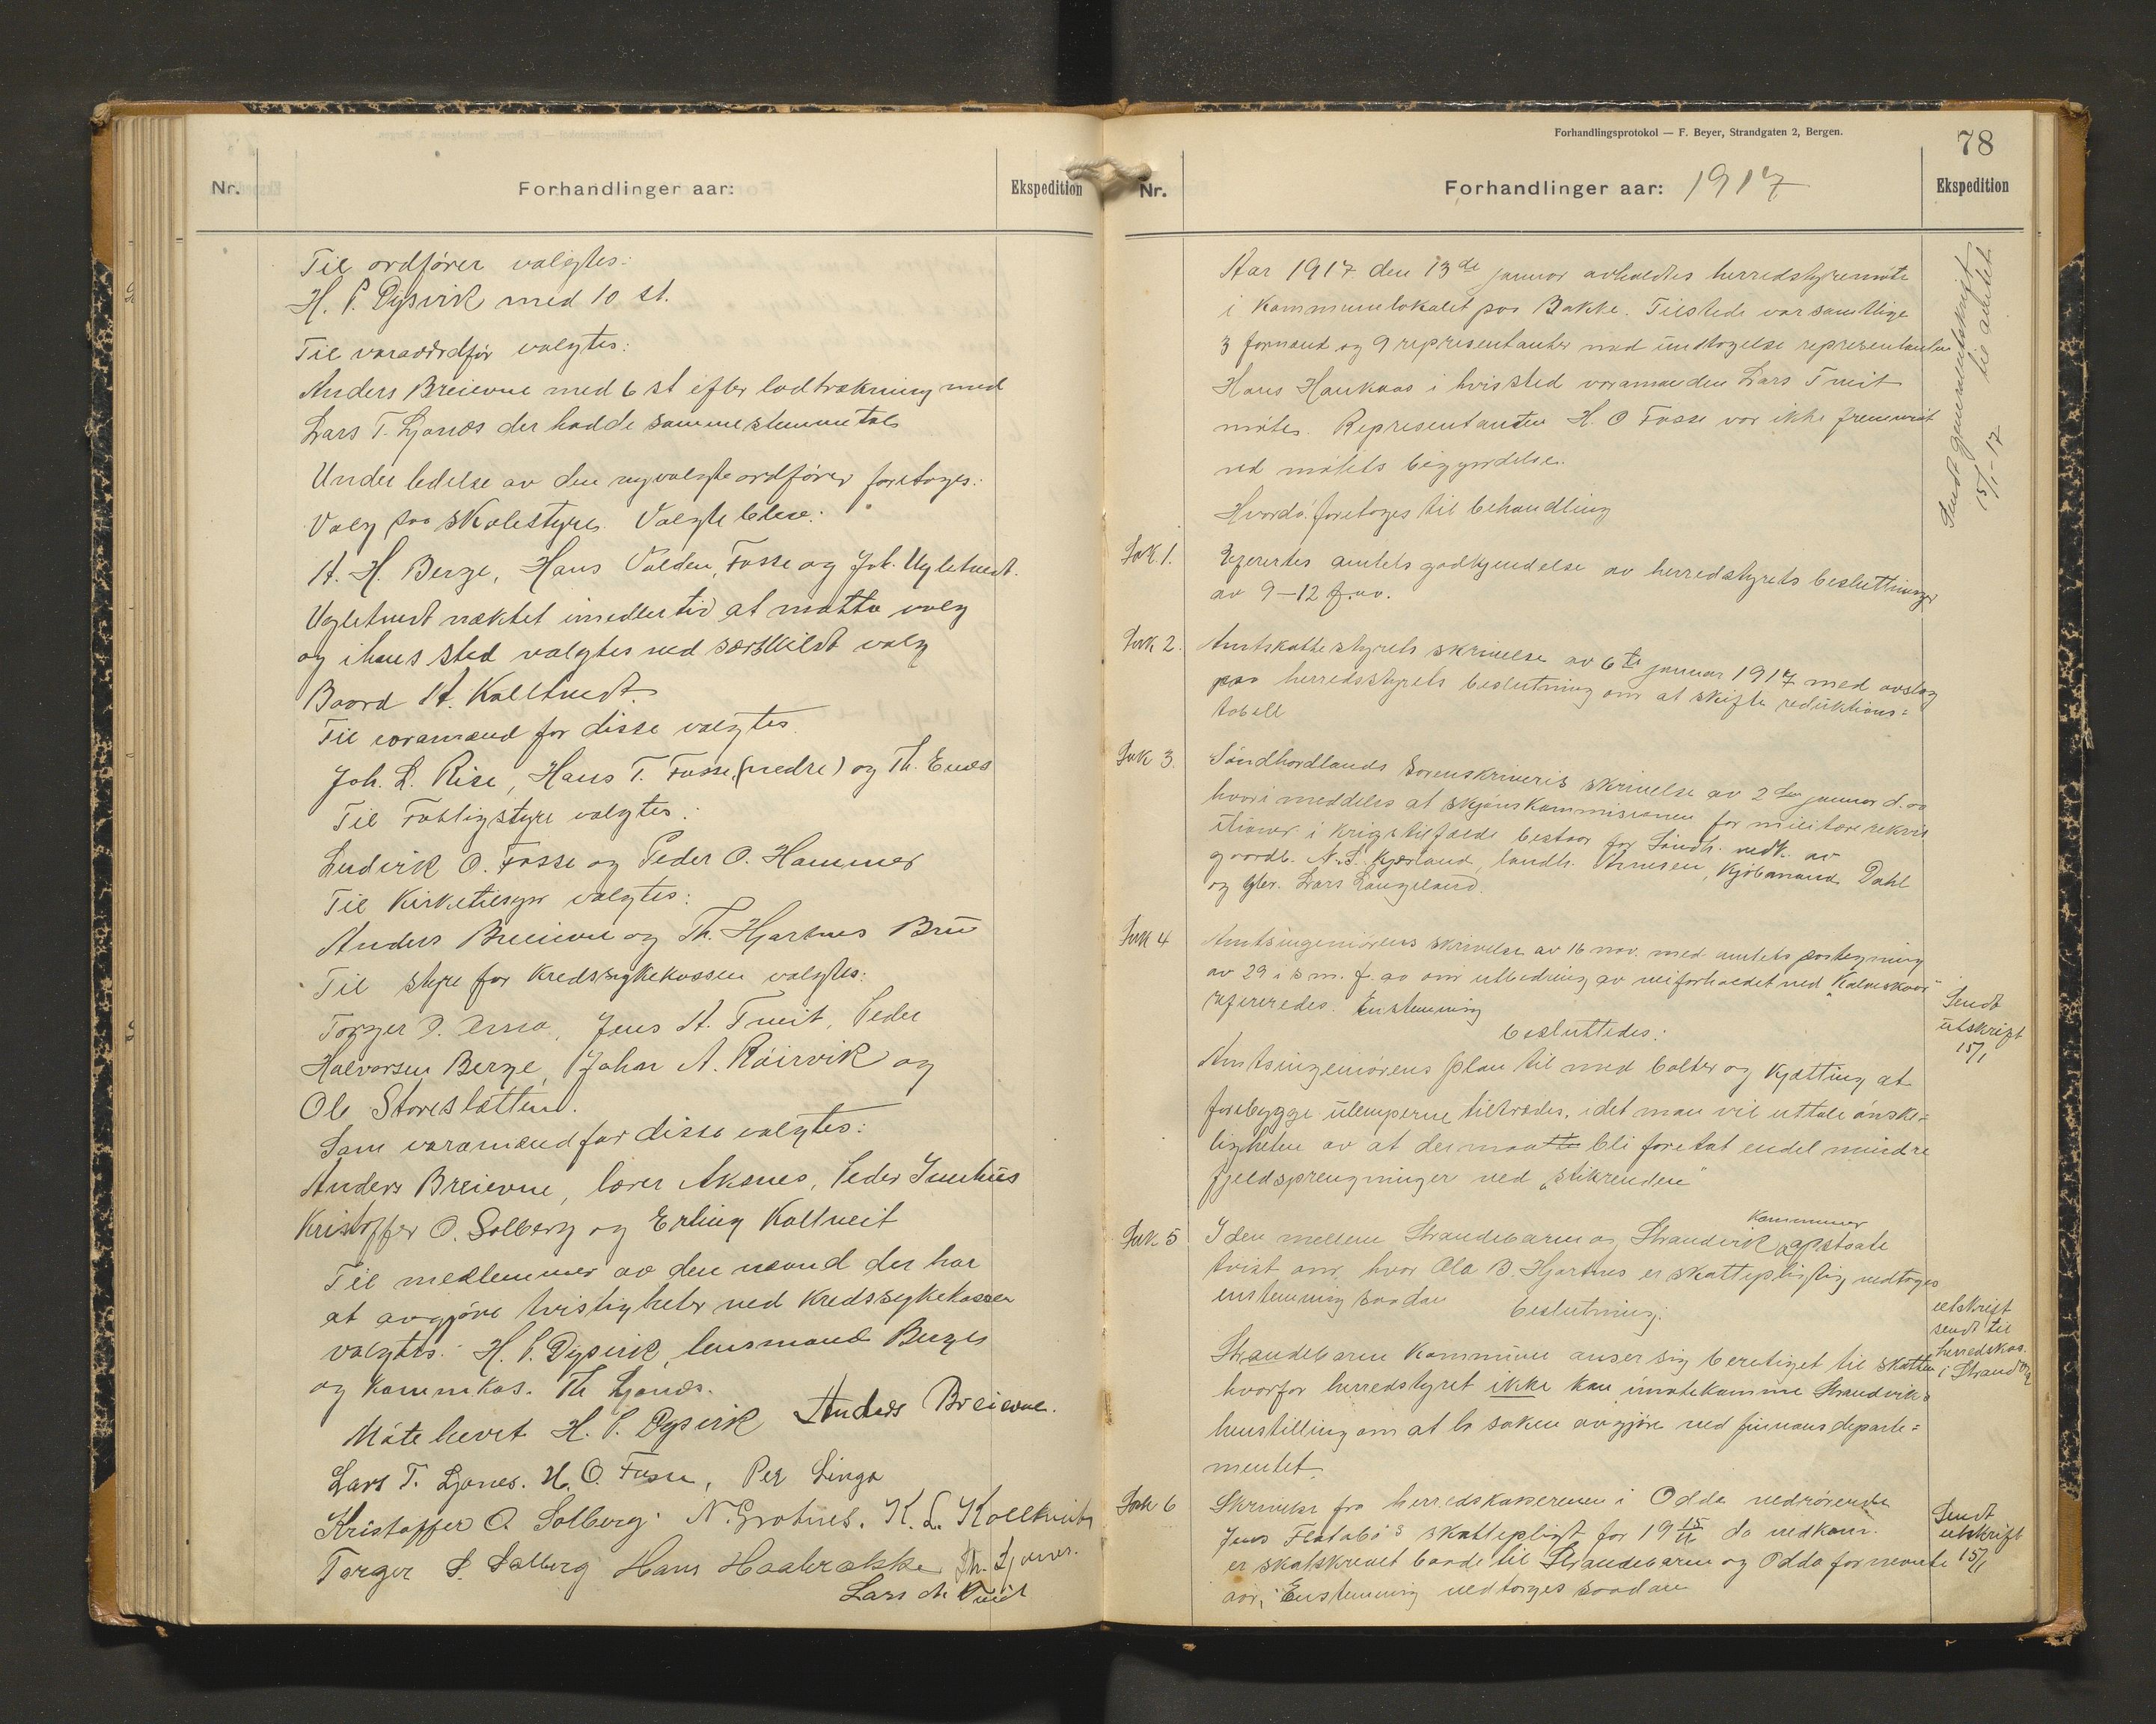 Nr.
Forhandlinger aar:
Ekspedition
Til ordfører valgtes:
H. P. Dysvik med 10 st.
Til varaordfør valgtes:
Anders Breievne med 6 st efter lodtrækning med
Lars T. Ljones der hadde samme stemmetal
Under ledelse av den nyvalgte ordfører foretoges:
Valg paa skolestyre. Valgte blev:
A. H. Berge, Hans Valden, Fosse og Joh. Ugletvedt.
Ugletvedt nektet imedlertid at motta valg
og i hans sted valgtes ved særskildt valg
Baard A. Kalltvedt
Til varamænd for disse valgtes
Joh. L. Rise, Hans T. Fosse (nedre) og Th. Enes
Til Fattigstyre valgtes:
Ludvik O. Fosse og Peder O. Hammer
Til Kirketilsyn valgtes:
Anders Breievne og Th. Hjartnes Bru
Til styre for Kredssykekassen valgtes:
Torger P. Ersva, Jens A. Tveit, Peder
Halvorsen Berge, Johan A. Röirvik og
Ole Storesletten.
Som varamænd for disse valgtes:
Anders Breievne, lærer Aksnes, Peder Innhús
Kristoffer O. Solberg og Erling Koltveit
Til medlemmer av den nevnd der har
at avgjöre tvistigheter ved Kredssykekassen
valgtes: H. P. Dysvik, lensmand Berge
og kommkas. Th Ljones.
Möte hevet H. P. Dysvik Anders Breievne.
Lars T. Ljones. H. O. Fosse, Per Linga
Kristoffer O. Solberg. N. Grotnes. K. L. Kolltveit
Torger P. Solberg Hans Haabrække Th. Ljones.
Lars M Tveit
Forhandlingsprotokol — F. Beyer, Strandgaten 2, Bergen.
78
Nr.
Forhandlinger aar: 1917
Ekspedition
Aar 1917 den 13de januar avholdtes herredstyremöte
i kommunelokalet paa Bakke. Tilstede var samtlige
3 formænd og 9 representanter med undtagelse representanten
Hans Haukaas i hvis sted varamanden Lars Tveit
mötes. Representanten H. O Fosse var ikke fremmöt
ved mötets begyndelse.
Hvorda foretoges til behandling
Sendt generalutskrift
til amtet
15/1-17
Sak 1. Refererdes amtets godkjendelse av herredstyrets beslutninger
av 9–12 f. av.
Sak 2. Amtskattestyrets skrivelse av 6te januar 1917 med avslag
paa herredsstyrets beslutning om at skifte reduktions=
tabell
Sak 3. Söndhordlands Sorenskriveris skrivelse av 2den januar d. aa
hvori meddeles at skjönskommisionen for militære rekvis
itioner i krigstilfælde bestaar for Söndh. vedk. av
gaardb. N. S. Kjærland, landh. Thuesen, Kjöbmand Dahl
og gbr. Lars Langeland.
Sak 4 Amtsingeniörens skrivelse av 16 nov. med amtets paategning
av 29 i s m. f. aa om utbedring av veiforholdet ved "Kalveskaar"
refereredes. Enstemmig
besluttedes:
Sendt
utskrift
15/1
Amtsingeniörens plan til med bolter og kjætting at
forebygge ulemperne tiltrædes, idet man vil uttale önske=
ligheten av at der maatte bli foretat endel mindre
fjeldsprengninger ved "stikrenden"
Sak 5 I den mellem Strandebarm og Strandvik kommuner opstaate
tvist om hvor Ola B. Hjartnes er skattepligtig vedtoges
enstemmig saadan beslutning:
Strandebarm Kommune anser sig beretiget til skatten
hvorfor herredstyret ikke kan imötekomme Strandviks
henstilling om at la saken avgjöre ved finansdeparte=
mentet.
utskrift
sendt til
herredskas.
i Strandvik
Sak 6 Skrivelse fra herredskassereren i Odda vedrörende
Jens Flatabö's skattepligt for 19 15/16 da vedkom.
er skatskrevet baade til Strandebarm og Odda for nevnte
aar. Enstemmig vedtoges saadan
Sendt
utskrift
15/1